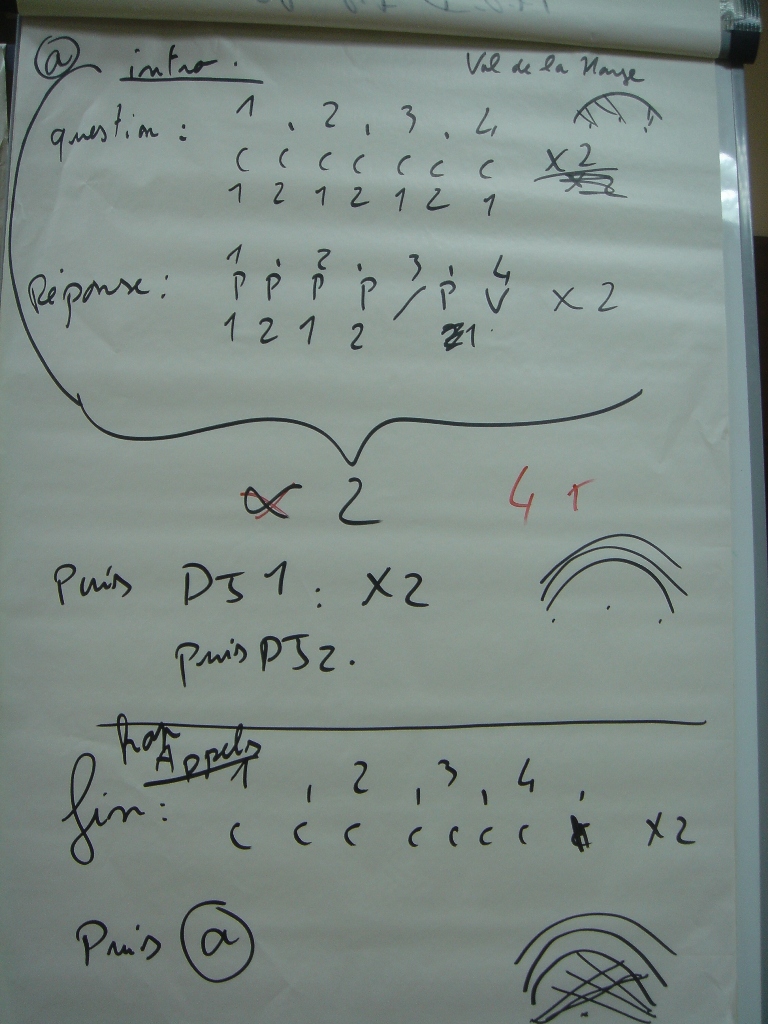 ⓐ intro. Val de la Hauze
question : 1 , 2 , 3 , 4
c c c c c c c x2
1 2 1 2 1 2 1
Réponse : 1 . 2 . 3 . 4
P P P P / P V x 2
1 2 1 2 1
2 4 T
Puis DJ 1 : x2
puis DJ 2.
Appels
fin : 1 , 2 , 3 , 4 ,
c c c c c c c x2
Puis ⓐ